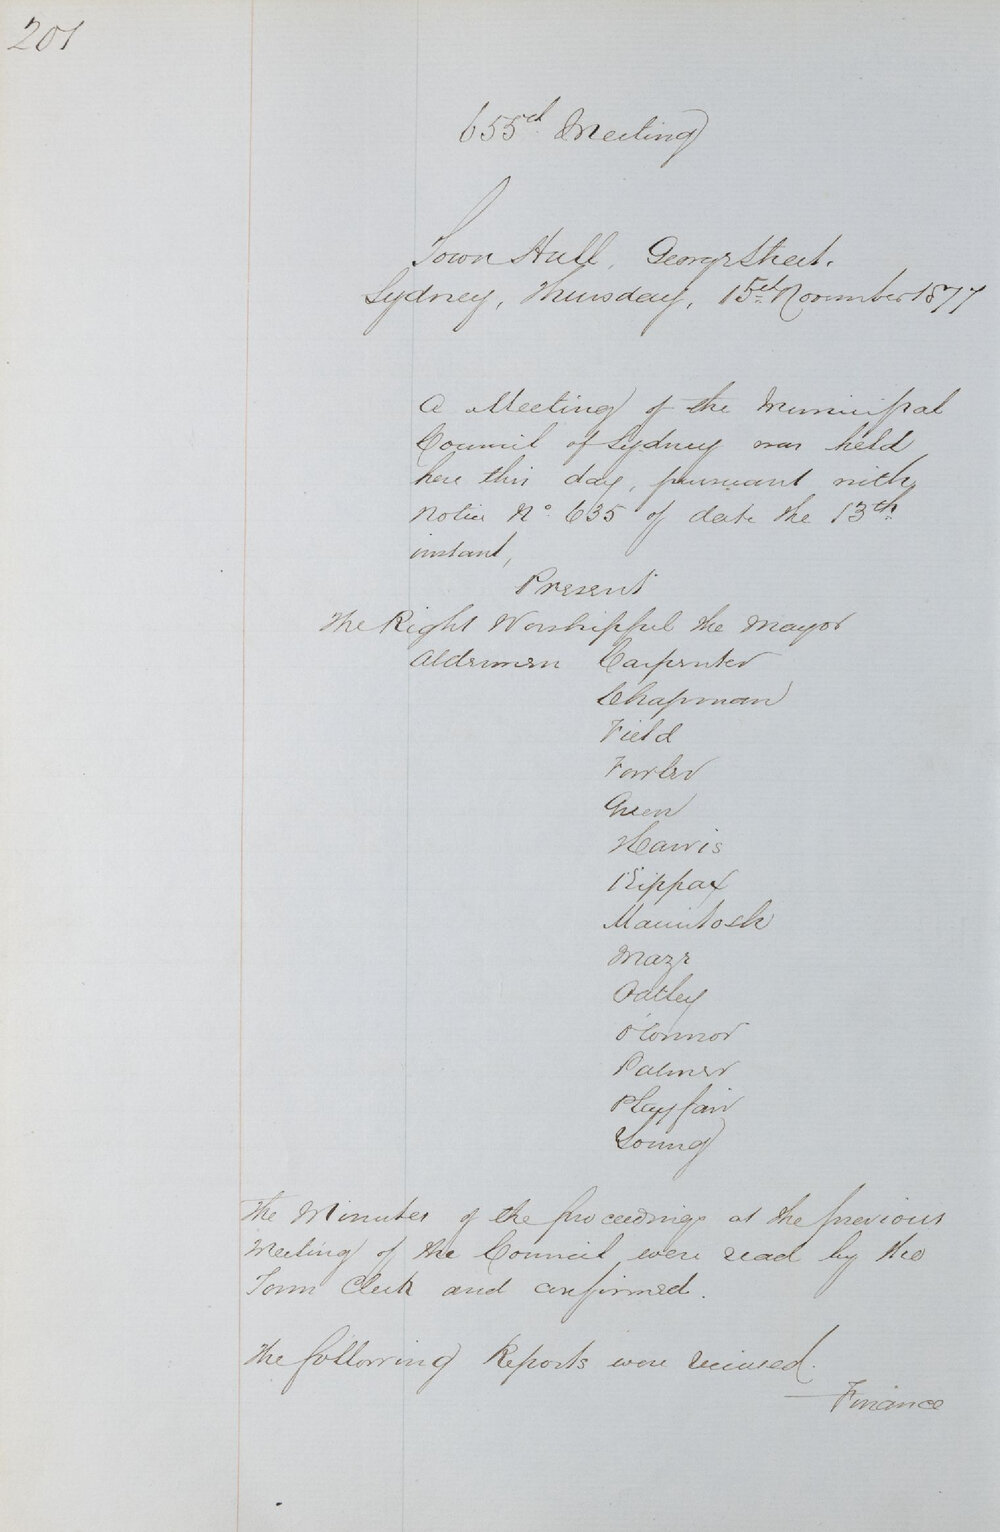 201
655th Meeting
Town Hall, George Street.
Sydney, Thursday, 15th November 1877
A Meeting of the Municipal
Council of Sydney was held
here this day, pursuant with
Notice No. 635 of date the 13th
instant,
Present
The Right Worshipful the Mayor
Aldermen Carpenter
Chapman
Field
Fowler
Green
Harris
Kippax
Macintosh
Maze
Oatley
O'Connor
Palmer
Playfair
Young
The Minutes of the proceedings at the previous
Meeting of the Council were read by the
Town Clerk and confirmed.
The following Reports were received.
Finance